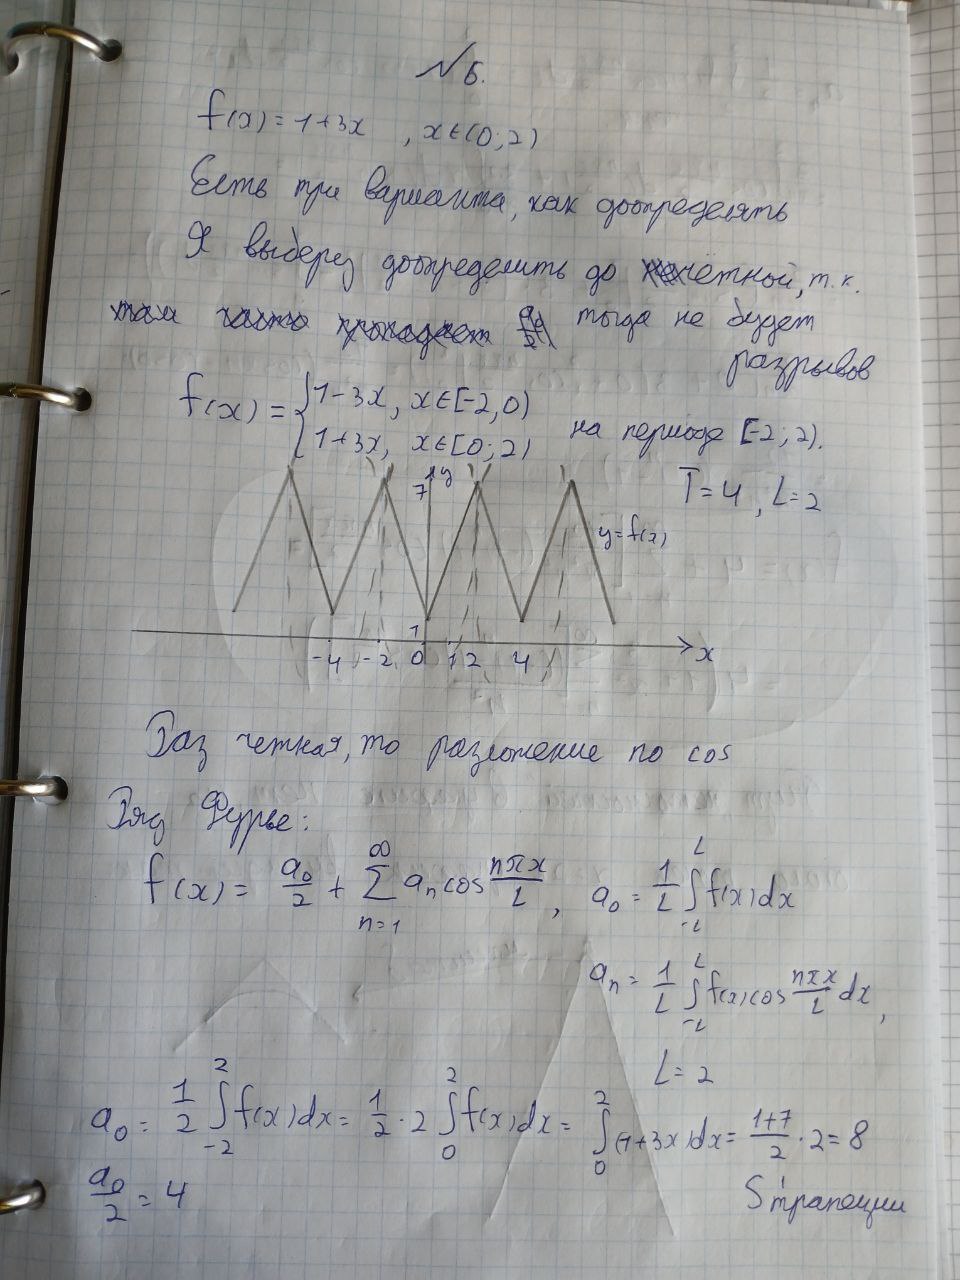 № 6.
f(x) = 1+3x , x∈(0;2)
Есть три варианта, как доопределять
Я выберу доопределить до чётной, т.к.
тогда не будет
разрывов
f(x) = { 1-3x, x∈[-2,0)
1+3x, x∈[0;2) на периоде [-2;2).
T=4, L=2
7 y
y=f(x)
1
-4 -2 0 1 2 4 x
Раз четная, то разложение по cos
Ряд Фурье:
f(x) = a₀/2 + ∑_{n=1}^{∞} aₙ cos nπx/L , a₀ = 1/L ∫_{-L}^{L} f(x)dx
aₙ = 1/L ∫_{-L}^{L} f(x) cos nπx/L dx,
L=2
a₀ = 1/2 ∫_{-2}^{2} f(x)dx = 1/2 · 2 ∫_{0}^{2} f(x)dx = ∫_{0}^{2} (1+3x)dx = (1+7)/2 · 2 = 8
a₀/2 = 4 S трапеции